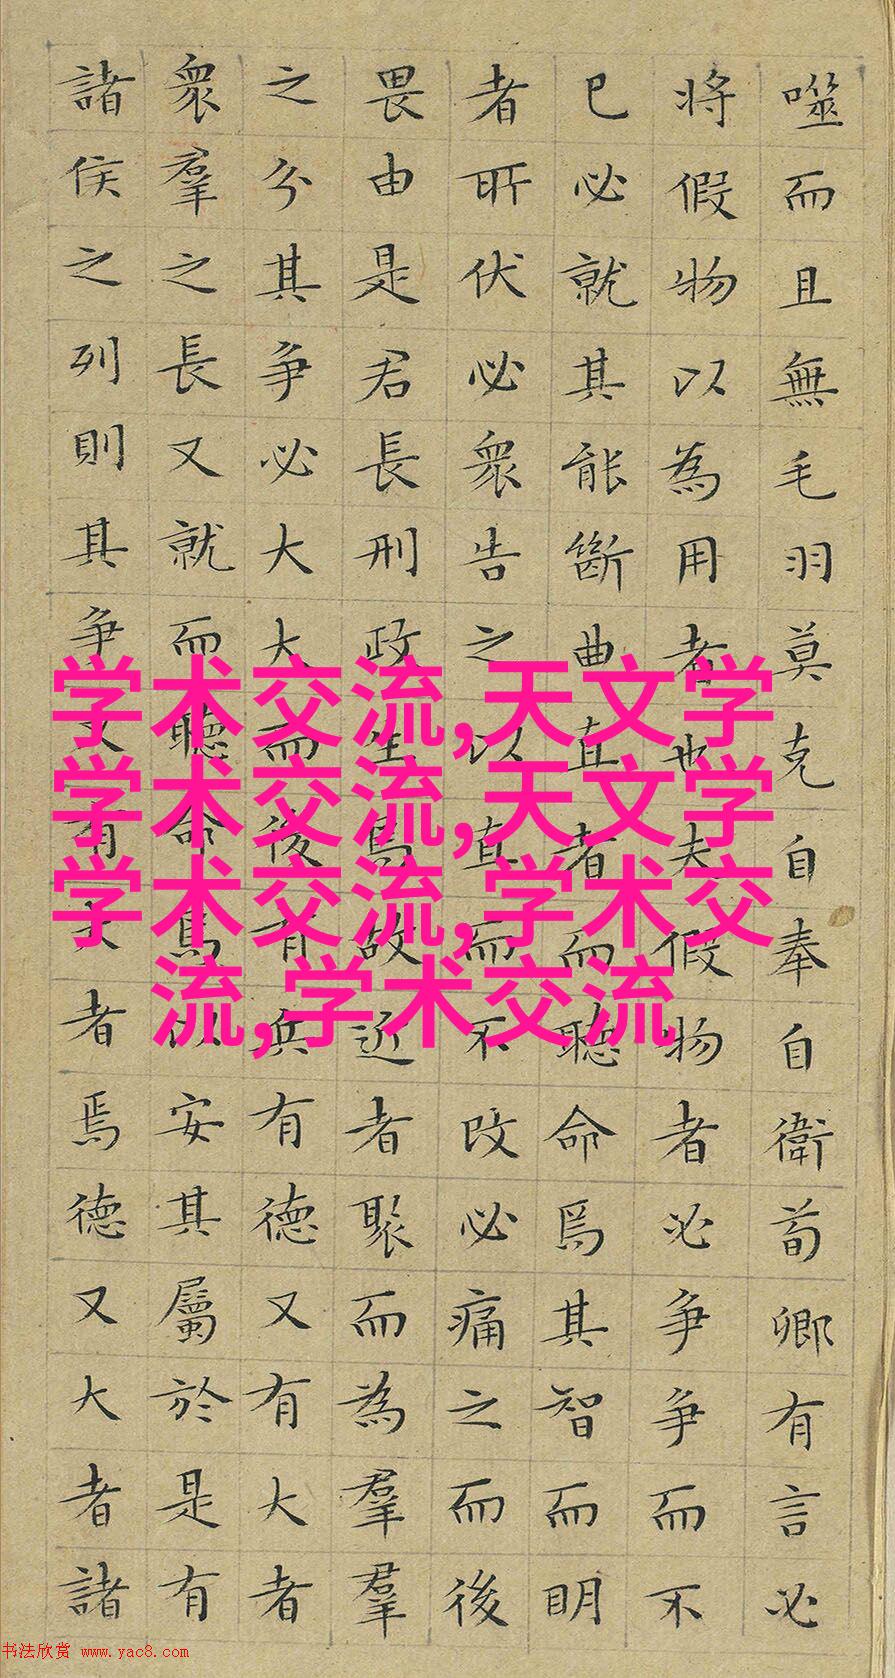 噬而且無毛羽莫克自奉自衛荀卿有言必
将假物以為用者也夫假物者必争争而不
已必就其能斷曲直者而聽命焉其智而明
者所伏必衆告之以直而不改必痛之而後
畏由是君長刑政生焉故近者聚而為羣羣
之分其争必大大而後有兵有德又有大者
衆羣之長又就而聽命焉以安其屬於是有
諸侯之列則其争又有大者焉德又大者諸
学术交流,天文学
学术交流,天文学
学术交流,学术交
流,学术交流
书法欣赏 www.yac8.com